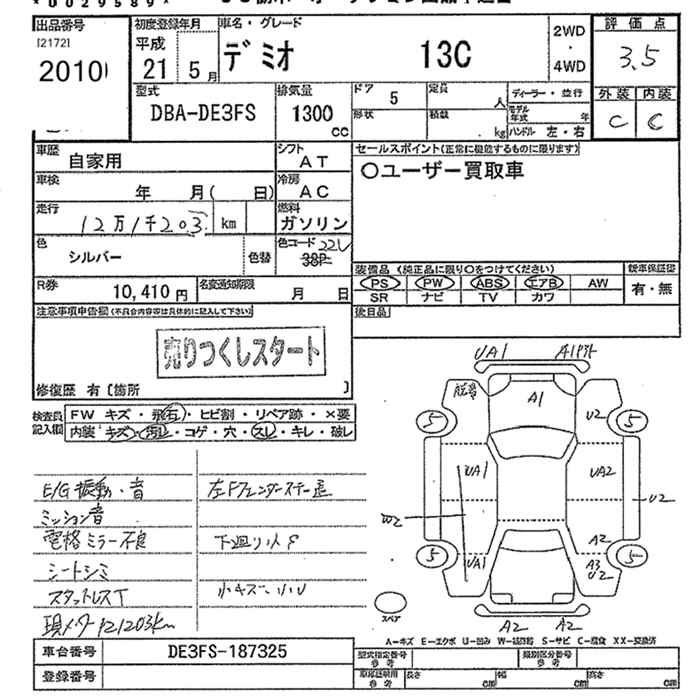 *0029589*
出品番号
[2172]
2010
初度登録年月
平成
21 5月
車名・グレード
デミオ 13C
2WD
・
4WD
評価点
3.5
外装 内装
C C
型式
DBA-DE3FS
排気量
1300
cc
ドア
5
定員
人
ディーラー・並行
形状
積載
kg
モデル年式 年
ハンドル 左・右
車歴
自家用
シフト
AT
車検
年 月( 日)
冷房
AC
走行
12万1千203
km
燃料
ガソリン
色
シルバー
色替
色コード 22V
38P
R券
10,410円
名変通知期限
月 日
セールスポイント(正常に機能するものに限ります)
〇ユーザー買取車
装備品 (純正品に限り〇をつけてください) 新車保証書
PS PW ABS エアB AW
有・無
SR ナビ TV カワ
後日品
注意事項申告欄(不具合内容等は具体的に記入して下さい)
売りつくしスタート
修復歴 有 [箇所 ]
検査員
記入欄
FW キズ・飛石・ヒビ割・リペア跡・×要
内装 キズ・汚レ・コゲ・穴・スレ・キレ・破レ
E/G振動・音
左Fフェンダーステー歪
ミッション音
電格ミラー不良
下廻りサビ
シートシミ
スタットレスT
小キズ・小U
現メータ121203km
UA1
A1
A1
U2
5
5
UA1
UA2
U2
W2
A2
5
UA1
A3
U2
5
スペア
A2
A2
A-キズ E-エクボ U-凹み W-補修跡 S-サビ C-腐食 XX-交換済
車台番号
DE3FS-187325
登録番号
型式指定番号
参考
類別区分番号
参考
車庫証明用
参考
長さ
cm
幅
cm
高さ
cm